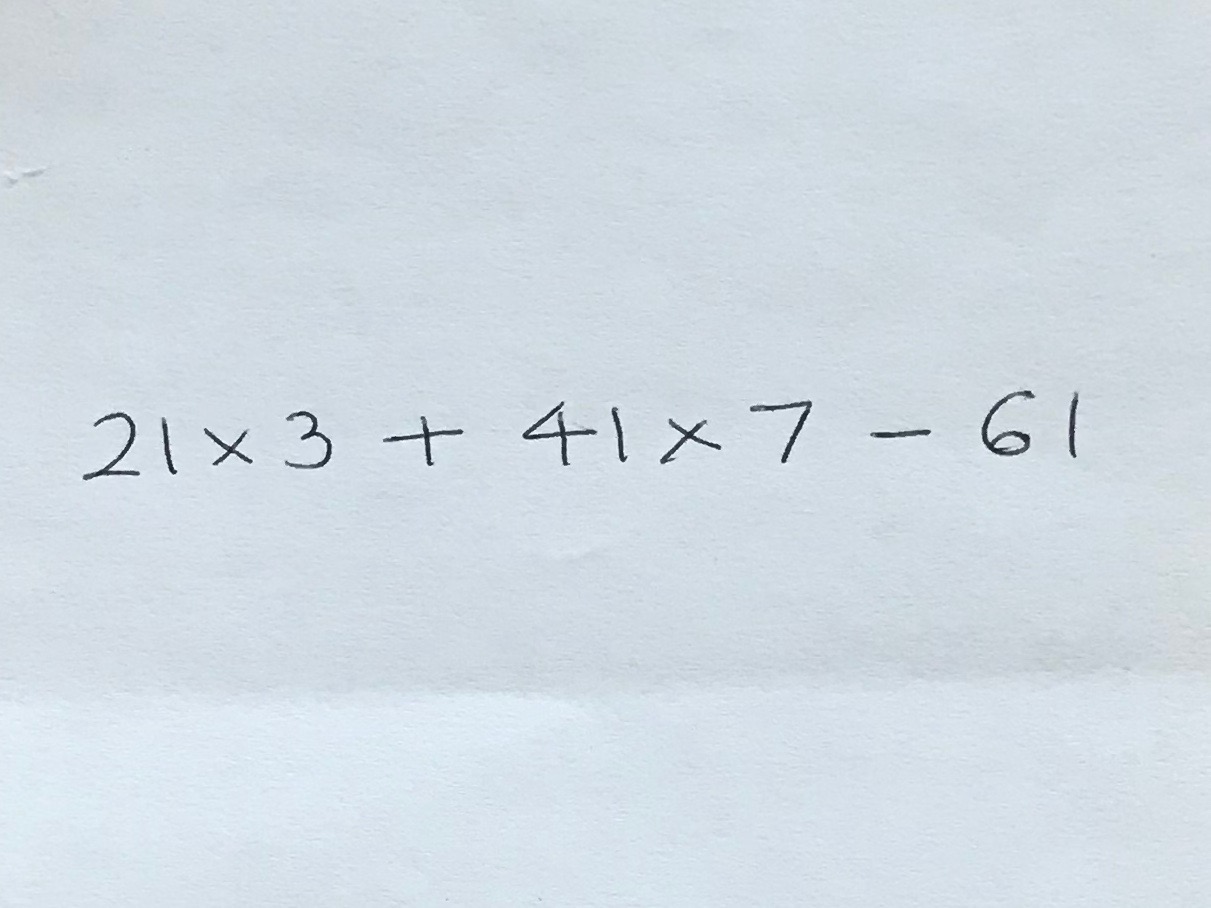 21 × 3 + 41 × 7 - 61